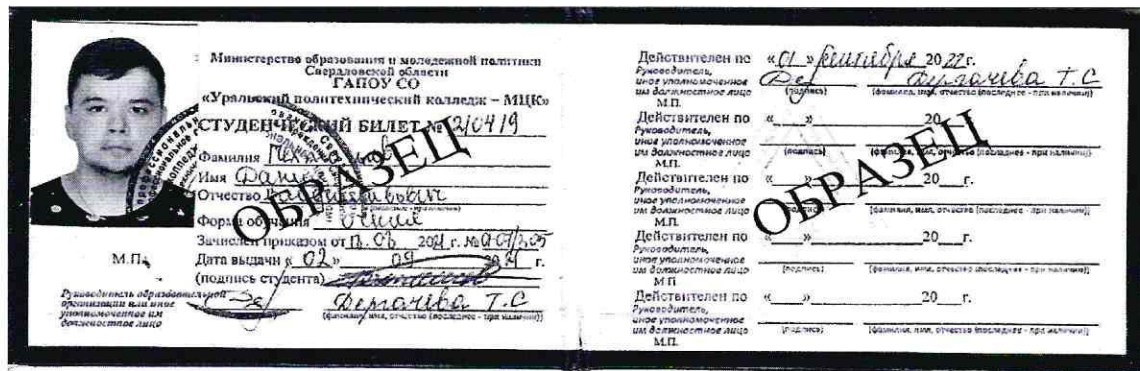 Министерство образования и молодежной политики
Свердловской области
ГАПОУ СО
«Уральский политехнический колледж – МЦК»
СТУДЕНЧЕСКИЙ БИЛЕТ № 2/0419
Фамилия
Имя
Отчество
Форма обучения
Зачислен приказом от 2021 г. №
Дата выдачи « 02 » 09 2021 г.
(подпись студента)
М.П.
Руководитель образовательной
организации или иное
уполномоченное им
должностное лицо
Дергачева Т.С
(фамилия, имя, отчество (последнее - при наличии))
ОБРАЗЕЦ
Действителен по «01» сентября 2022г.
Руководитель,
иное уполномоченное
им должностное лицо
Дергачева Т.С
(подпись) (фамилия, имя, отчество (последнее - при наличии))
М.П.
Действителен по « » 20
Руководитель,
иное уполномоченное
им должностное лицо
(подпись) (фамилия, имя, отчество (последнее - при наличии))
М.П.
Действителен по « » 20 г.
Руководитель,
иное уполномоченное
им должностное лицо
(подпись) (фамилия, имя, отчество (последнее - при наличии))
М.П.
Действителен по « » 20 г.
Руководитель,
иное уполномоченное
им должностное лицо
(подпись) (фамилия, имя, отчество (последнее - при наличии))
М.П
Действителен по « » 20 г.
Руководитель,
иное уполномоченное
им должностное лицо
(подпись) (фамилия, имя, отчество (последнее - при наличии))
М.П.
ОБРАЗЕЦ